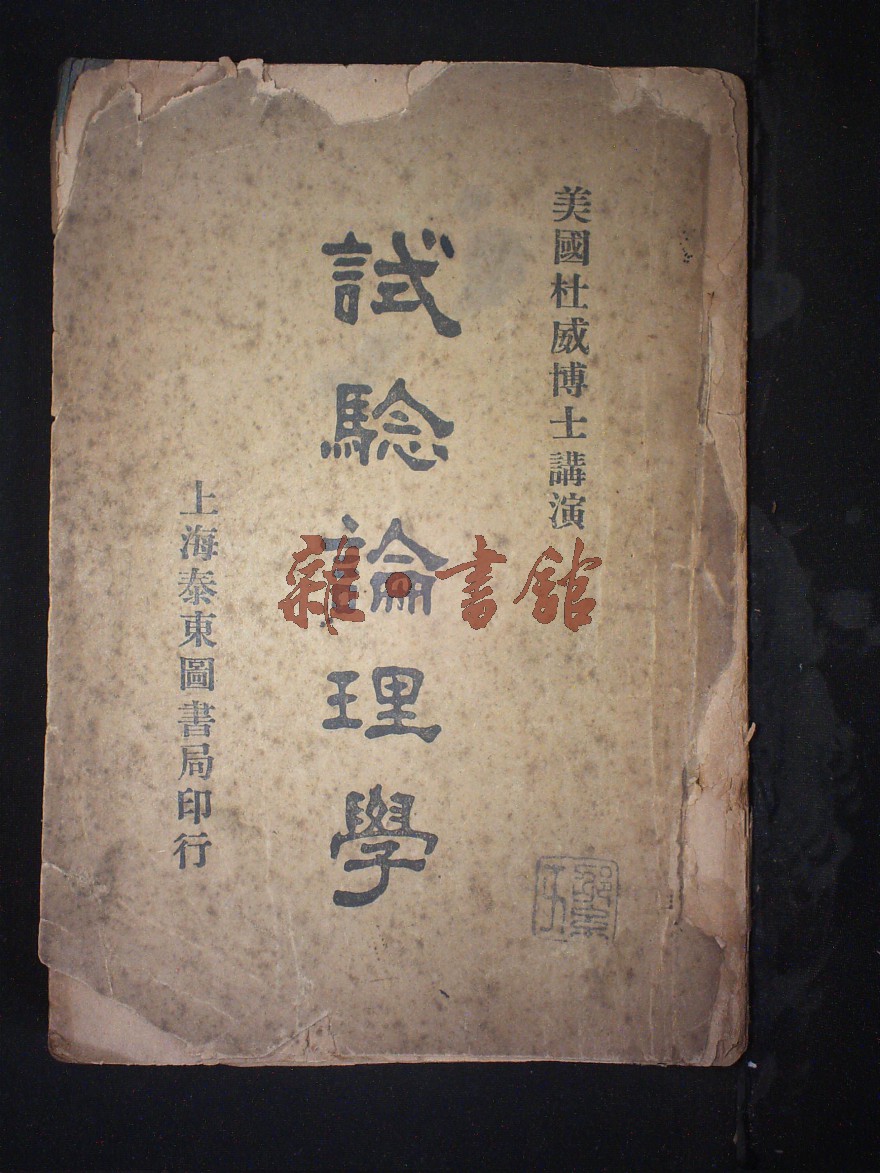 美國杜威博士講演
試驗論理學
上海泰東圖書局印行
雜·書舘